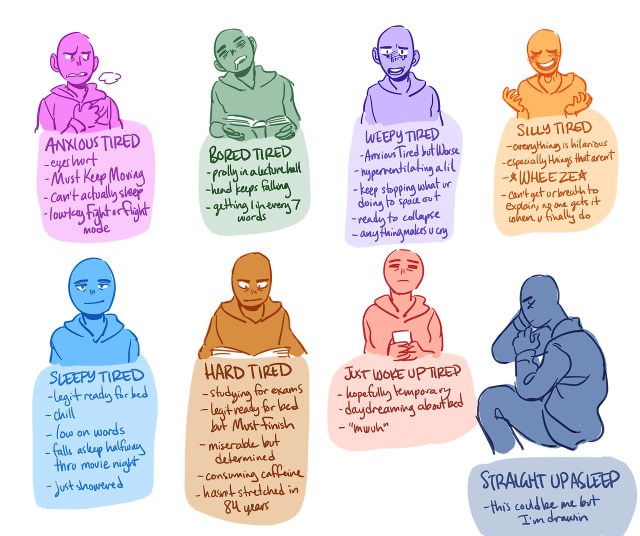 ANXIOUS TIRED
- eyes hurt
- Must Keep Moving
- Can't actually sleep
- lowkey fight or flight
mode
BORED TIRED
- prolly in a lecture hall
- head keeps falling
- getting 1 in every 7
words
WEEPY TIRED
- Anxious Tired but Worse
- hyperventilating a lil
- keep stopping what ur
doing to space out
- ready to collapse
- anything makes u cry
SILLY TIRED
- everything is hilarious
- especially things that aren't
- *WHEEZE*
- can't get ur breath to
explain, no one gets it
when u finally do
SLEEPY TIRED
- legit ready for bed
- chill
- low on words
- falls asleep halfway
thru movie night
- just showered
HARD TIRED
- studying for exams
- legit ready for bed
but Must Finish
- miserable but
determined
- consuming caffeine
- hasn't stretched in
84 years
JUST WOKE UP TIRED
- hopefully temporary
- daydreaming about bed
- "mwuh"
STRAIGHT UP ASLEEP
- this could be me but
I'm drawin